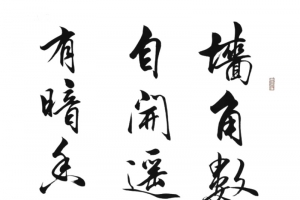 墙角数
自开遥
有暗香